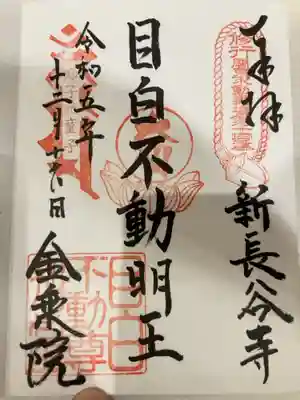 奉拝
新長谷寺
目白不動明王
令和五年
十二月十六日
金乗院
目白
不動尊